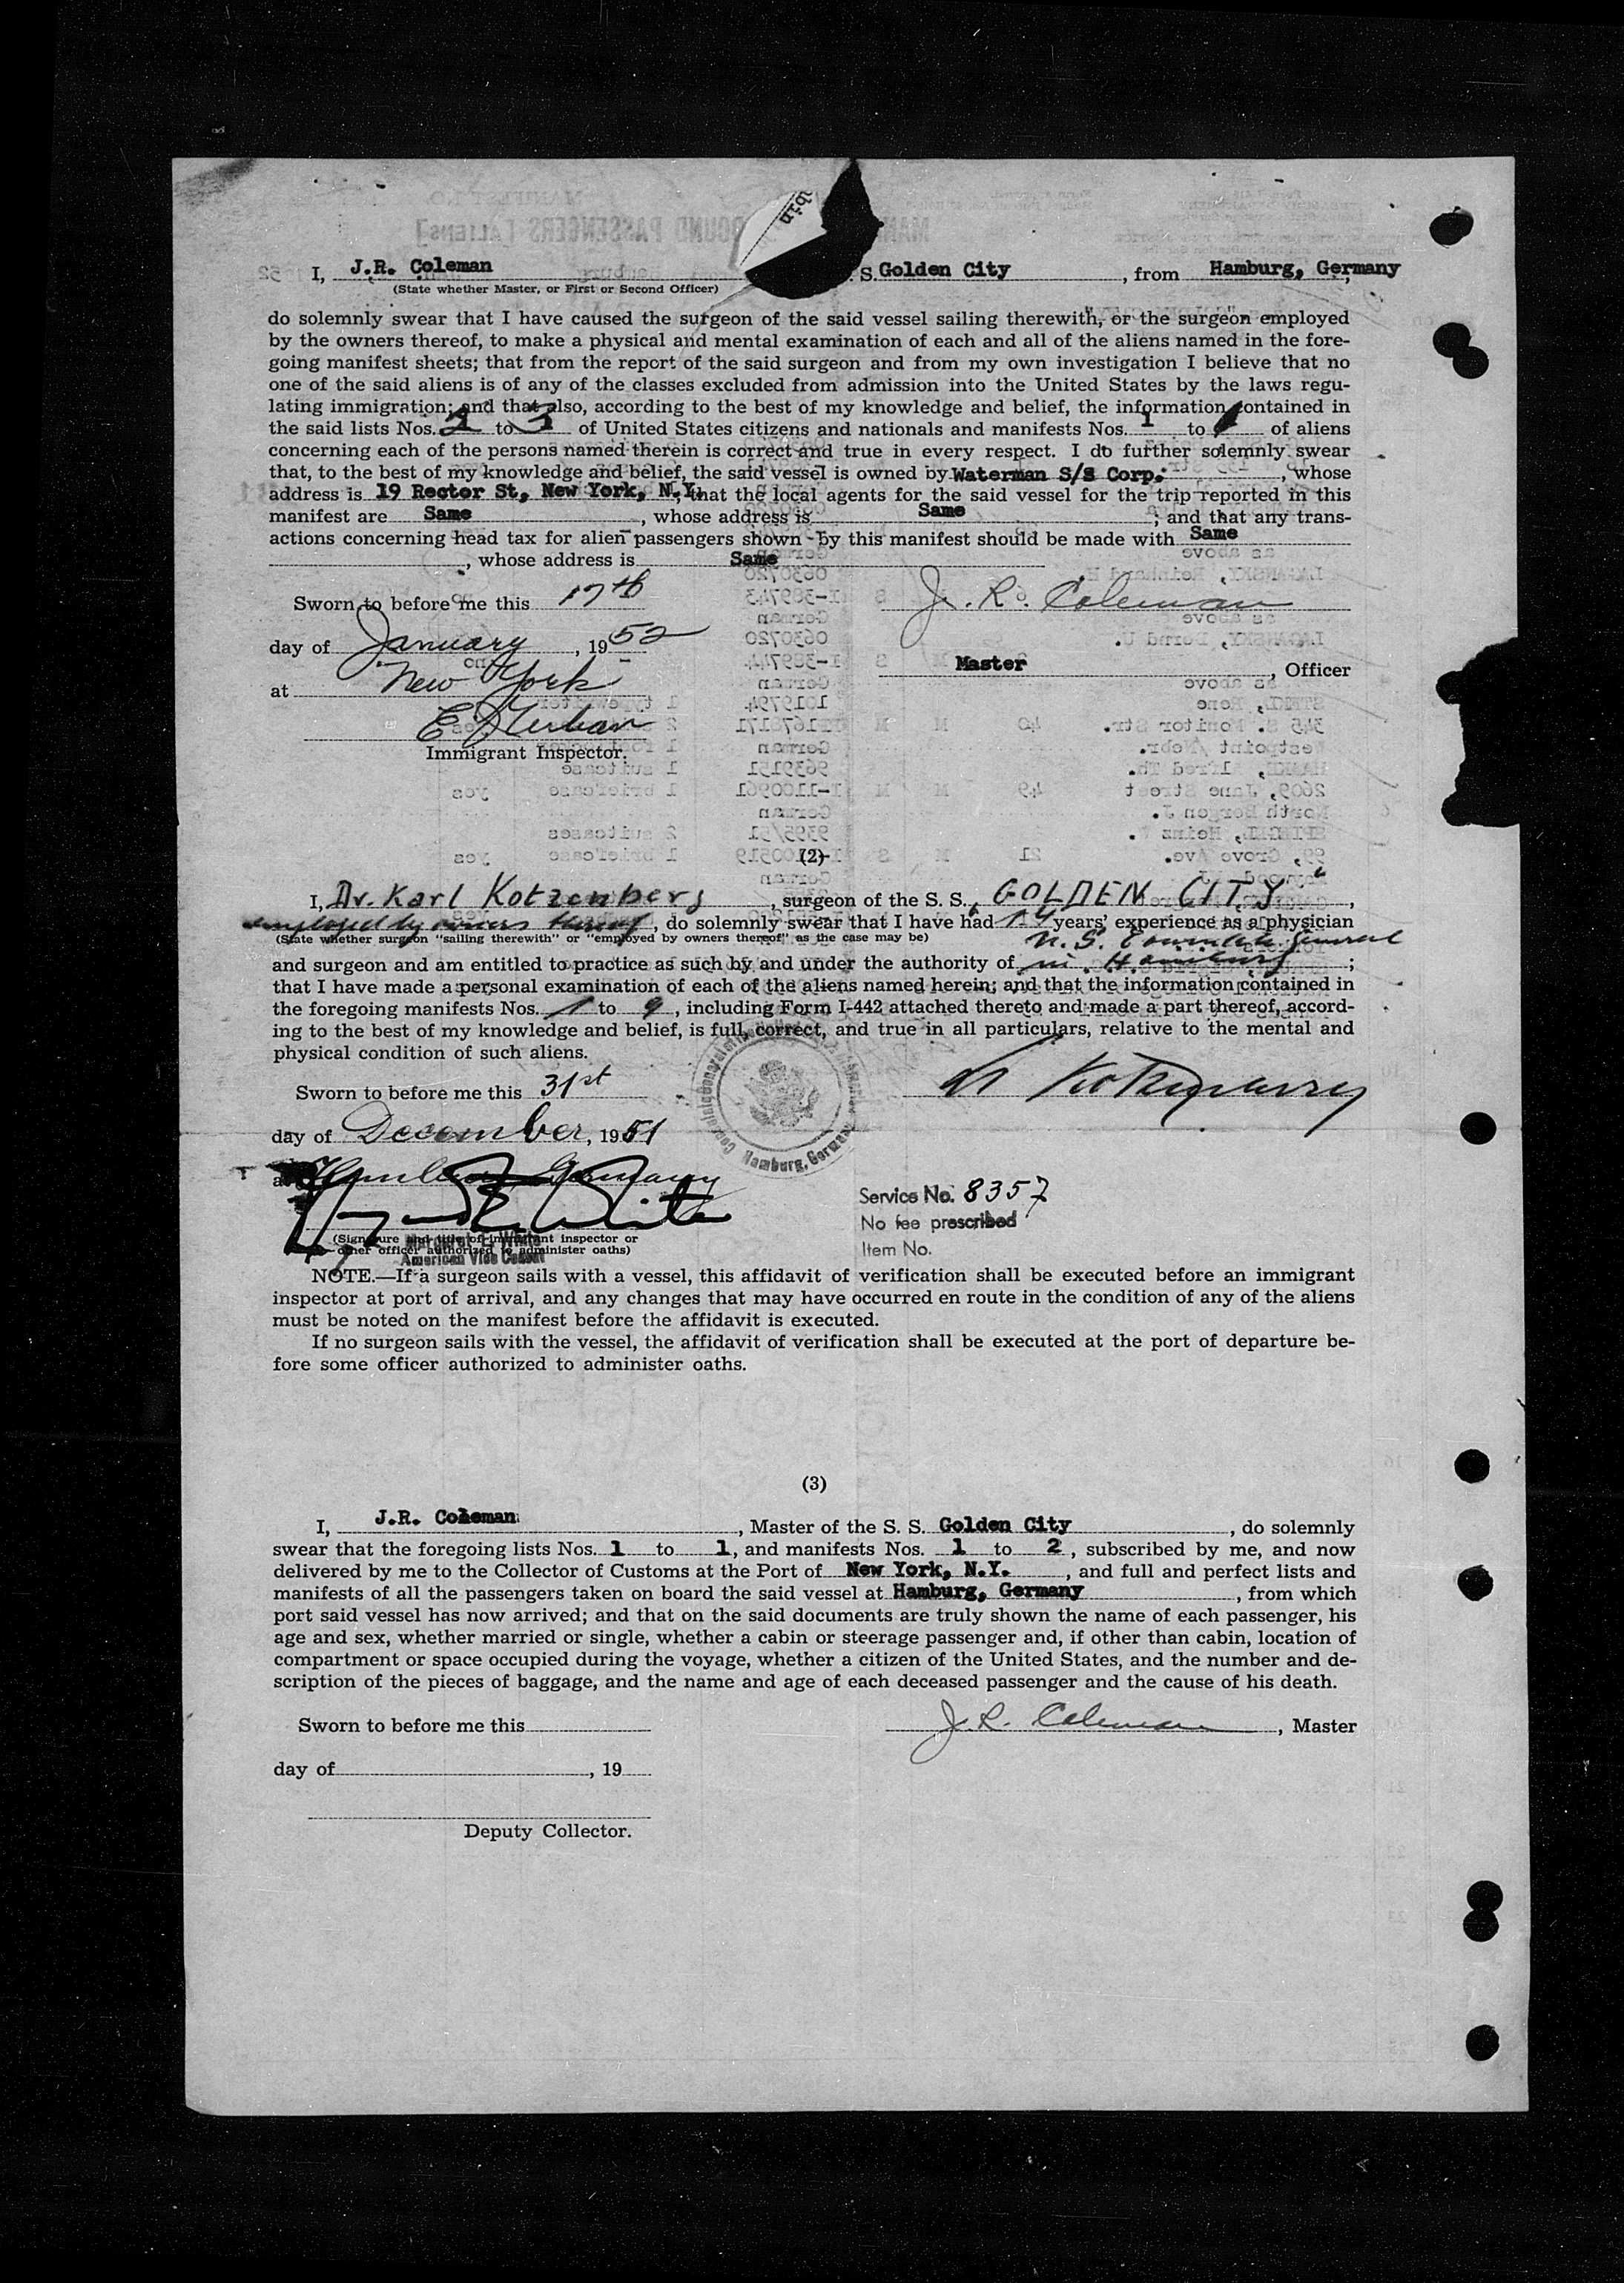 bin
I, J.R. Coleman S. Golden City, from Hamburg, Germany,
(State whether Master, or First or Second Officer)
do solemnly swear that I have caused the surgeon of the said vessel sailing therewith, or the surgeon employed
by the owners thereof, to make a physical and mental examination of each and all of the aliens named in the fore-
going manifest sheets; that from the report of the said surgeon and from my own investigation I believe that no
one of the said aliens is of any of the classes excluded from admission into the United States by the laws regu-
lating immigration; and that also, according to the best of my knowledge and belief, the information contained in
the said lists Nos. to of United States citizens and nationals and manifests Nos. 1 to of aliens
concerning each of the persons named therein is correct and true in every respect. I do further solemnly swear
that, to the best of my knowledge and belief, the said vessel is owned by Waterman S/S Corp., whose
address is 19 Rector St, New York, N.Y, that the local agents for the said vessel for the trip reported in this
manifest are Same, whose address is Same; and that any trans-
actions concerning head tax for alien passengers shown by this manifest should be made with Same
, whose address is Same
Sworn to before me this 17th J. R. Coleman
day of January, 1952
Master, Officer
at New York
Immigrant Inspector.
(2)
I, Dr. Karl Kotzenberg, surgeon of the S. S. GOLDEN CITY,
employed by owners thereof, do solemnly swear that I have had 14 years' experience as a physician
(State whether surgeon "sailing therewith" or "employed by owners thereof" as the case may be)
and surgeon and am entitled to practice as such by and under the authority of General in Hamburg;
that I have made a personal examination of each of the aliens named herein; and that the information contained in
the foregoing manifests Nos. 1 to 9, including Form I-442 attached thereto and made a part thereof, accord-
ing to the best of my knowledge and belief, is full, correct, and true in all particulars, relative to the mental and
physical condition of such aliens.
Sworn to before me this 31st Kotzenberg
day of December, 1951
Hamburg, Germany
at Hamburg, Germany
Service No. 8357
No fee prescribed
Item No.
(Signature and title of immigrant inspector or
other officer authorized to administer oaths)
Margaret E White
American Vice Consul
NOTE.—If a surgeon sails with a vessel, this affidavit of verification shall be executed before an immigrant
inspector at port of arrival, and any changes that may have occurred en route in the condition of any of the aliens
must be noted on the manifest before the affidavit is executed.
If no surgeon sails with the vessel, the affidavit of verification shall be executed at the port of departure be-
fore some officer authorized to administer oaths.
(3)
I, J.R. Coleman, Master of the S. S. Golden City, do solemnly
swear that the foregoing lists Nos. 1 to 1, and manifests Nos. 1 to 2, subscribed by me, and now
delivered by me to the Collector of Customs at the Port of New York, N.Y., and full and perfect lists and
manifests of all the passengers taken on board the said vessel at Hamburg, Germany, from which
port said vessel has now arrived; and that on the said documents are truly shown the name of each passenger, his
age and sex, whether married or single, whether a cabin or steerage passenger and, if other than cabin, location of
compartment or space occupied during the voyage, whether a citizen of the United States, and the number and de-
scription of the pieces of baggage, and the name and age of each deceased passenger and the cause of his death.
Sworn to before me this J. R. Coleman, Master
day of , 19
Deputy Collector.